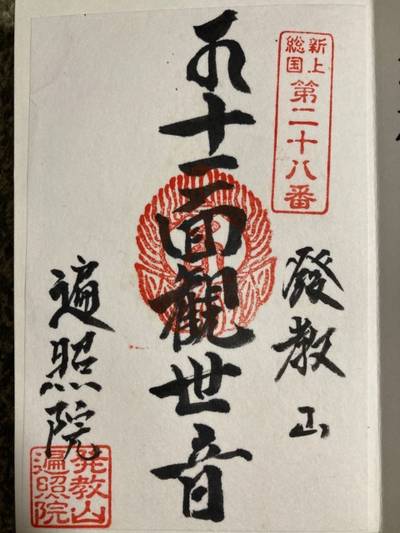 新上
総国
第二十八番
發教山
十一面觀世音
遍照院
発教山
遍照院